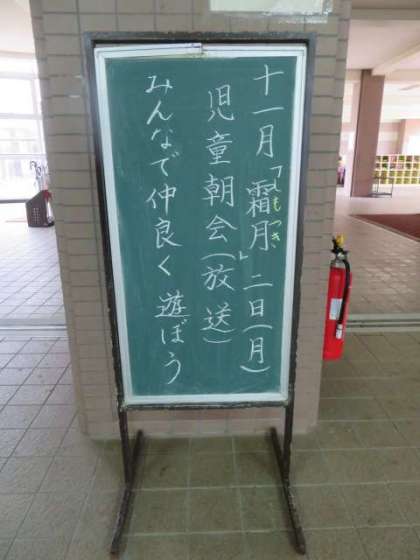 十一月「霜月」二日(月)
しもつき
児童朝会(放送)
みんなで仲良く遊ぼう